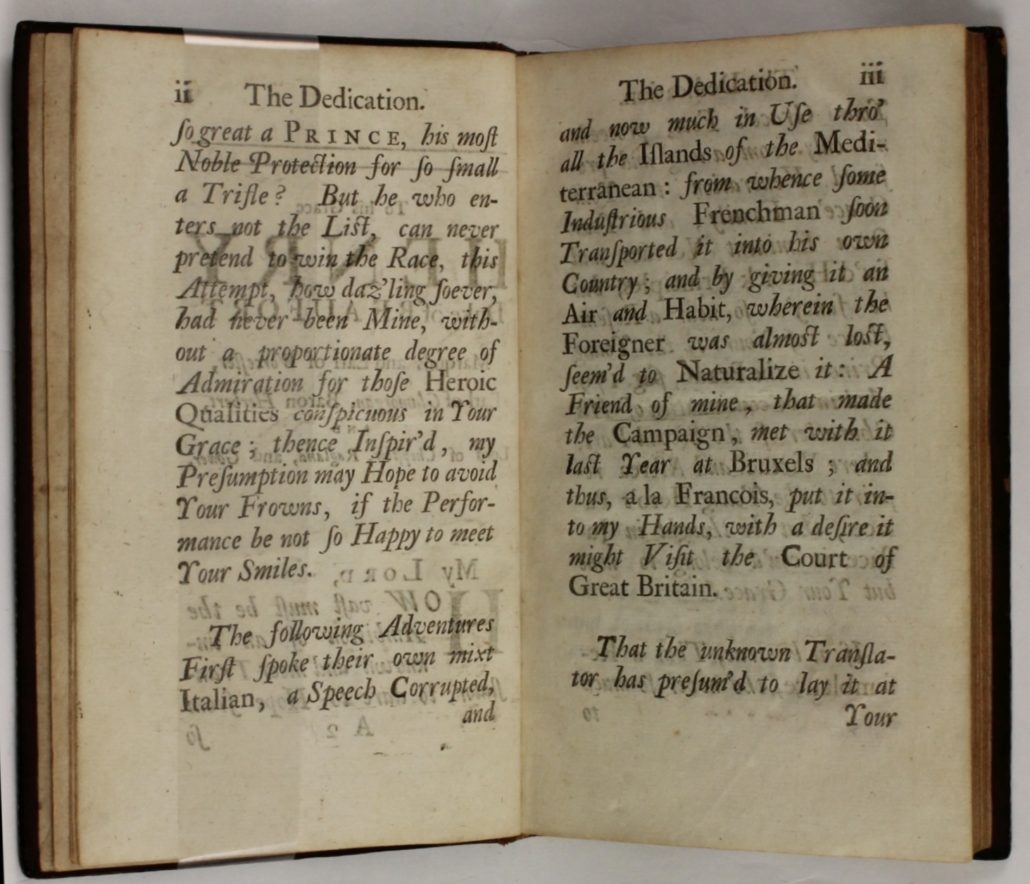 ii The Dedication.
ſo great a PRINCE, his moſt
Noble Protection for ſo ſmall
a Trifle? But he who en-
ters not the Liſt, can never
pretend to win the Race, this
Attempt, how daz'ling ſoever,
had never been Mine, with-
out a proportionate degree of
Admiration for thoſe Heroic
Qualities conſpicuous in Your
Grace; thence Inſpir'd, my
Preſumption may Hope to avoid
Your Frowns, if the Perfor-
mance be not ſo Happy to meet
Your Smiles.
The following Adventures
Firſt ſpoke their own mixt
Italian, a Speech Corrupted,
and
The Dedication. iii
and now much in Uſe thro'
all the Iſlands of the Medi-
terranean: from whence ſome
Induſtrious Frenchman ſoon
Tranſported it into his own
Country; and by giving it an
Air and Habit, wherein the
Foreigner was almoſt loſt,
ſeem'd to Naturalize it: A
Friend of mine, that made
the Campaign, met with it
laſt Year at Bruxels; and
thus, a la Francois, put it in-
to my Hands, with a deſire it
might Viſit the Court of
Great Britain.
That the unknown Tranſla-
tor has preſum'd to lay it at
Your